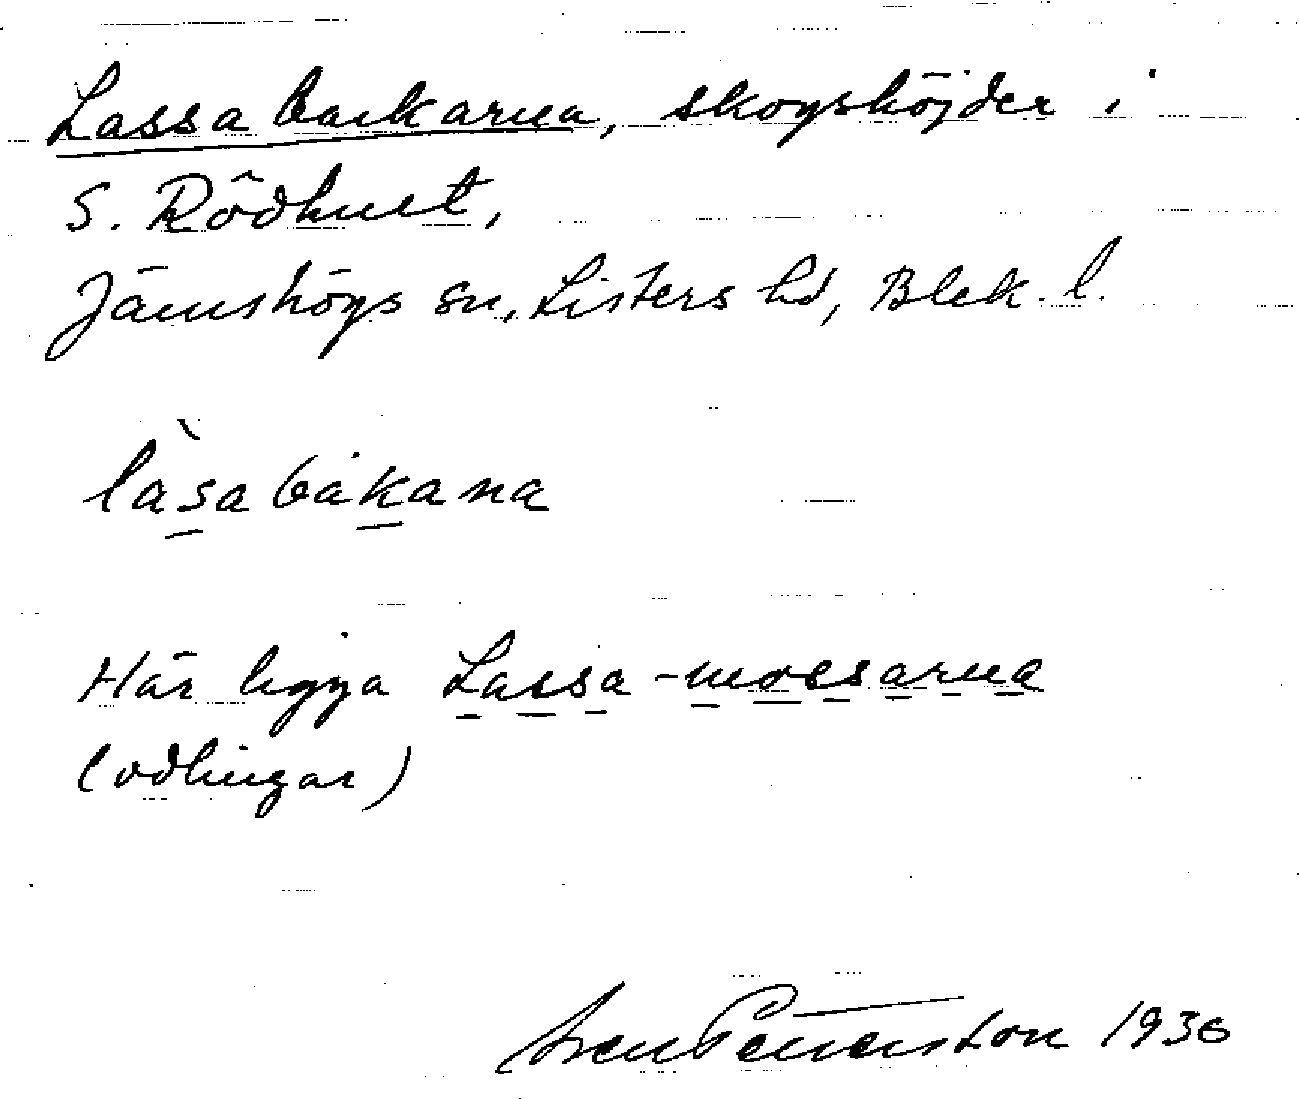 Lassa backarna, skogshöjder i
S. Rödhult,
Jämshögs sn, Listers hd, Blek. l.
làsabákana
Här ligga Lassa-mossarna
(odlingar)
Sven Benson 1936